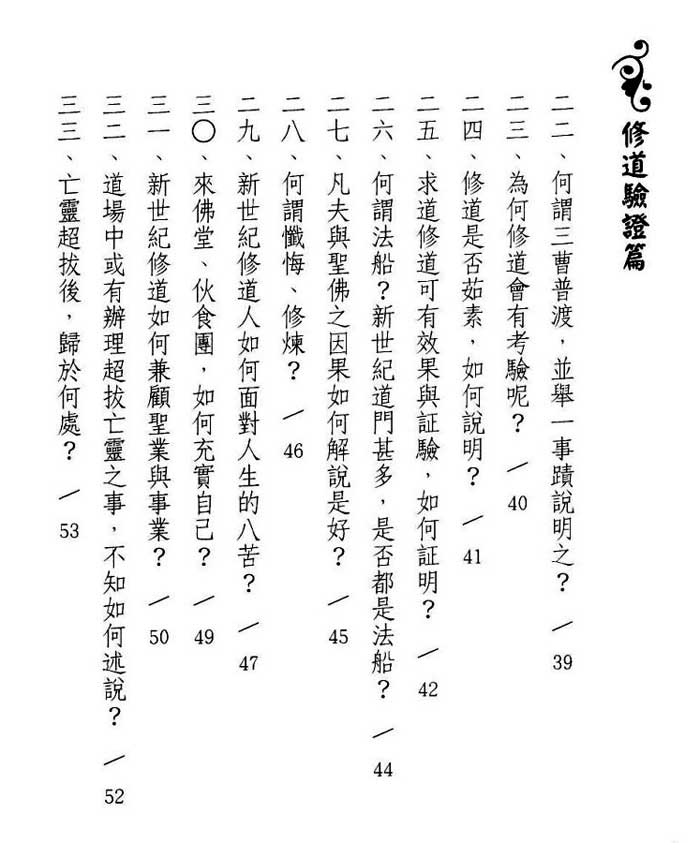 修道驗證篇
二二、何謂三曹普渡，並舉一事蹟說明之？／39
二三、為何修道會有考驗呢？／40
二四、修道是否茹素，如何說明？／41
二五、求道修道可有效果與証驗，如何証明？／42
二六、何謂法船？新世紀道門甚多，是否都是法船？／44
二七、凡夫與聖佛之因果如何解說是好？／45
二八、何謂懺悔、修煉？／46
二九、新世紀修道人如何面對人生的八苦？／47
三〇、來佛堂、伙食團，如何充實自己？／49
三一、新世紀修道如何兼顧聖業與事業？／50
三二、道場中或有辦理超拔亡靈之事，不知如何述說？／52
三三、亡靈超拔後，歸於何處？／53